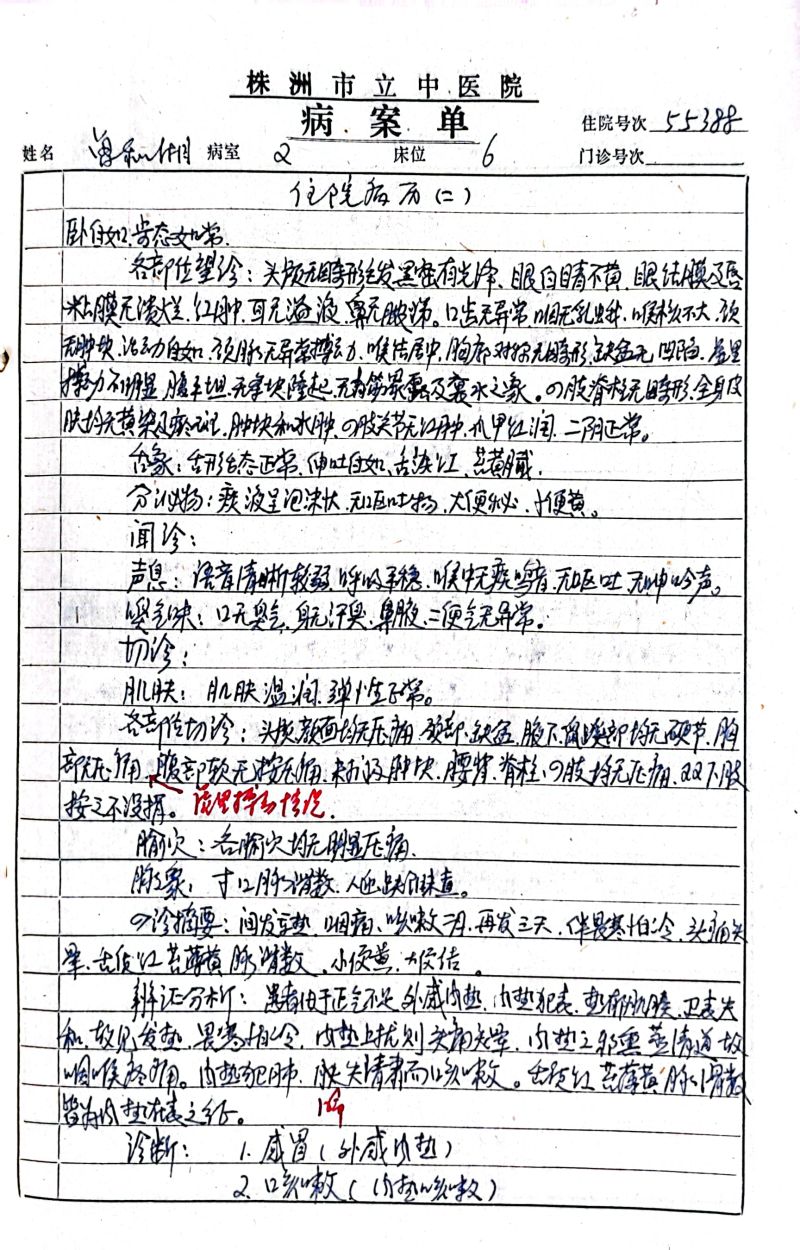 株洲市立中医院
病案单
住院号次 55388
姓名 病室 2 床位 6 门诊号次
住院病历(二)
卧自如,姿态如常。
各部位望诊:头颅无畸形,毛发黑密有光泽,眼白睛不黄,眼结膜及唇
粘膜无溃烂、红肿,耳无溢液,鼻无脓涕。口齿无异常,咽无乳蛾,喉核不大,颈
无肿块,活动自如,颈脉无异常搏动,喉结居中,胸廓对称无畸形,缺盆无凹陷,虚里
搏动不明显,腹平坦,无癥块隆起,无青筋暴露及裹水之象。四肢脊柱无畸形,全身皮
肤均无黄染及瘀斑,肿块和水肿,四肢关节无红肿,爪甲红润,二阴正常。
舌象:舌形态正常,伸吐自如,舌淡红,苔黄腻。
分泌物:痰液呈泡沫状,无呕吐物,大便秘,小便黄。
闻诊:
声息:语音清晰较弱,呼吸平稳,喉中无痰鸣音,无呕吐,无呻吟声。
嗅气味:口无臭气,身无汗臭,鼻腋、二便气无异常。
切诊:
肌肤:肌肤温润,弹性正常。
各部位切诊:头皮颜面均无压痛,颈部、缺盆、腋下均无硬节,胸
部无压痛,腹部软无按压痛,未扪及肿块,腰背、脊柱、四肢均无压痛,双下肢
按之不没指。虚里搏动情况.
腧穴:各腧穴均无明显压痛。
脉象:寸口脉滑数,人迎趺阳未查。
四诊摘要:间发发热、咽痛、咳嗽一月,再发三天,伴畏寒怕冷,头痛头
晕,舌质红苔薄黄脉滑数,小便黄,大便结。
辨证分析:患者由于正气不足,外感风热,风热犯表,热郁肌腠,卫表失
和,故见发热、畏寒怕冷,风热上扰则头痛头晕,风热之邪熏蒸清道故
咽喉疼痛。风热犯肺,肺失清肃而咳嗽。舌质红苔薄黄脉滑数
皆为风热在表之征。
诊断: 1.感冒(外感风热)
2.咳嗽(风热咳嗽)